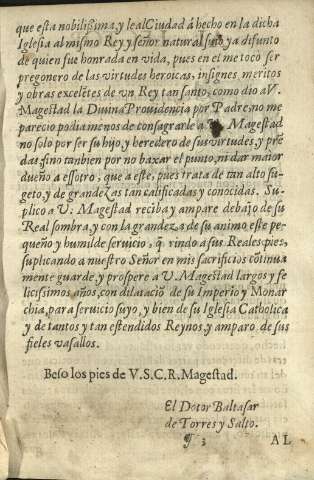 que esta nobilissima, y leal Ciudad á hecho en la dicha
Iglesia al mismo Rey y señor natural suyo ya difunto
de quien fue honrada en vida, pues en el me tocó ser
pregonero de las virtudes heroicas, insignes meritos
y obras excelẽtes de vn Rey tan santo, como dio a V.
Magestad la Divina Providencia por Padre, no me
parecio podia menos de consagrarle a V. Magestad
no solo por ser su hijo, y heredero de sus virtudes, y prẽ
das, sino tanbien por no baxar el punto, ni dar maior
dueño a essotro, que a este, pues trata de tan alto su-
geto, y de grandezas tan calificadas y conocidas. Su-
plico a V. Magestad reciba y ampare debajo de su
Real sombra, y con la grandeza de su animo este pe-
queño y humilde seruicio, q̃ rindo a sus Reales pies,
suplicando a nuestro Señor en mis sacrificios cõtinua
mente guarde, y prospere a V. Magestad largos y fe
licissimos años, con dilataciõ de su Imperio y Monar
chia, para seruicio suyo, y bien de su Iglesia Catholica
y de tantos y tan estendidos Reynos, y amparo de sus
fieles vasallos.
Beso los pies de V.S.C.R. Magestad.
El Dotor Baltasar
de Torres y Salto.
¶ 3 AL